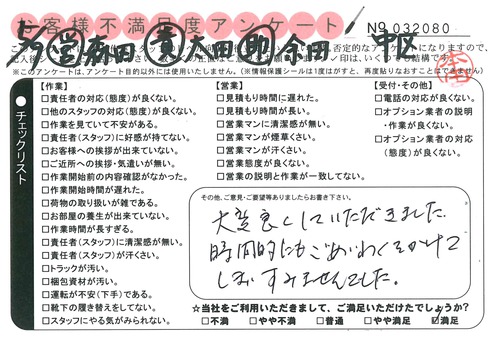 お客様不満足度アンケート
No 032080
中区
※このアンケートは、アンケート目的以外には使用いたしません。(※情報保護シールは1度はがすと、再度貼りなおすことはできません)
チェックリスト
【作業】
□責任者の対応(態度)が良くない。
□他のスタッフの対応(態度)が良くない。
□作業を見ていて不安がある。
□責任者(スタッフ)に好感が持てない。
□お客様への挨拶が出来ていない。
□ご近所への挨拶・気遣いが無い。
□作業開始前の内容確認がなかった。
□作業開始時間が遅れた。
□荷物の取り扱いが雑である。
□お部屋の養生が出来ていない。
□作業時間が長すぎる。
□責任者(スタッフ)に清潔感が無い。
□責任者(スタッフ)が汗くさい。
□トラックが汚い。
□梱包資材が汚い。
□運転が不安(下手)である。
□靴下の履き替えをしてない。
□スタッフにやる気がみられない。
【営業】
□見積もり時間に遅れた。
□見積もり時間が長い。
□営業マンに清潔感が無い。
□営業マンが煙草くさい。
□営業マンが汗くさい。
□営業態度が良くない。
□営業の説明と作業が一致してない。
【受付・その他】
□電話の対応が良くない。
□オプション業者の説明
・作業が良くない。
□オプション業者の対応
(態度)が良くない。
その他、ご意見・ご要望等ありましたらお書き下さい。
大変良くしていただきました。
時間的にもごめいわくをかけて
しまいすみませんでした。
☆当社をご利用いただきまして、ご満足いただけたでしょうか?
□不満 □やや不満 □普通 □やや満足 ☑満足